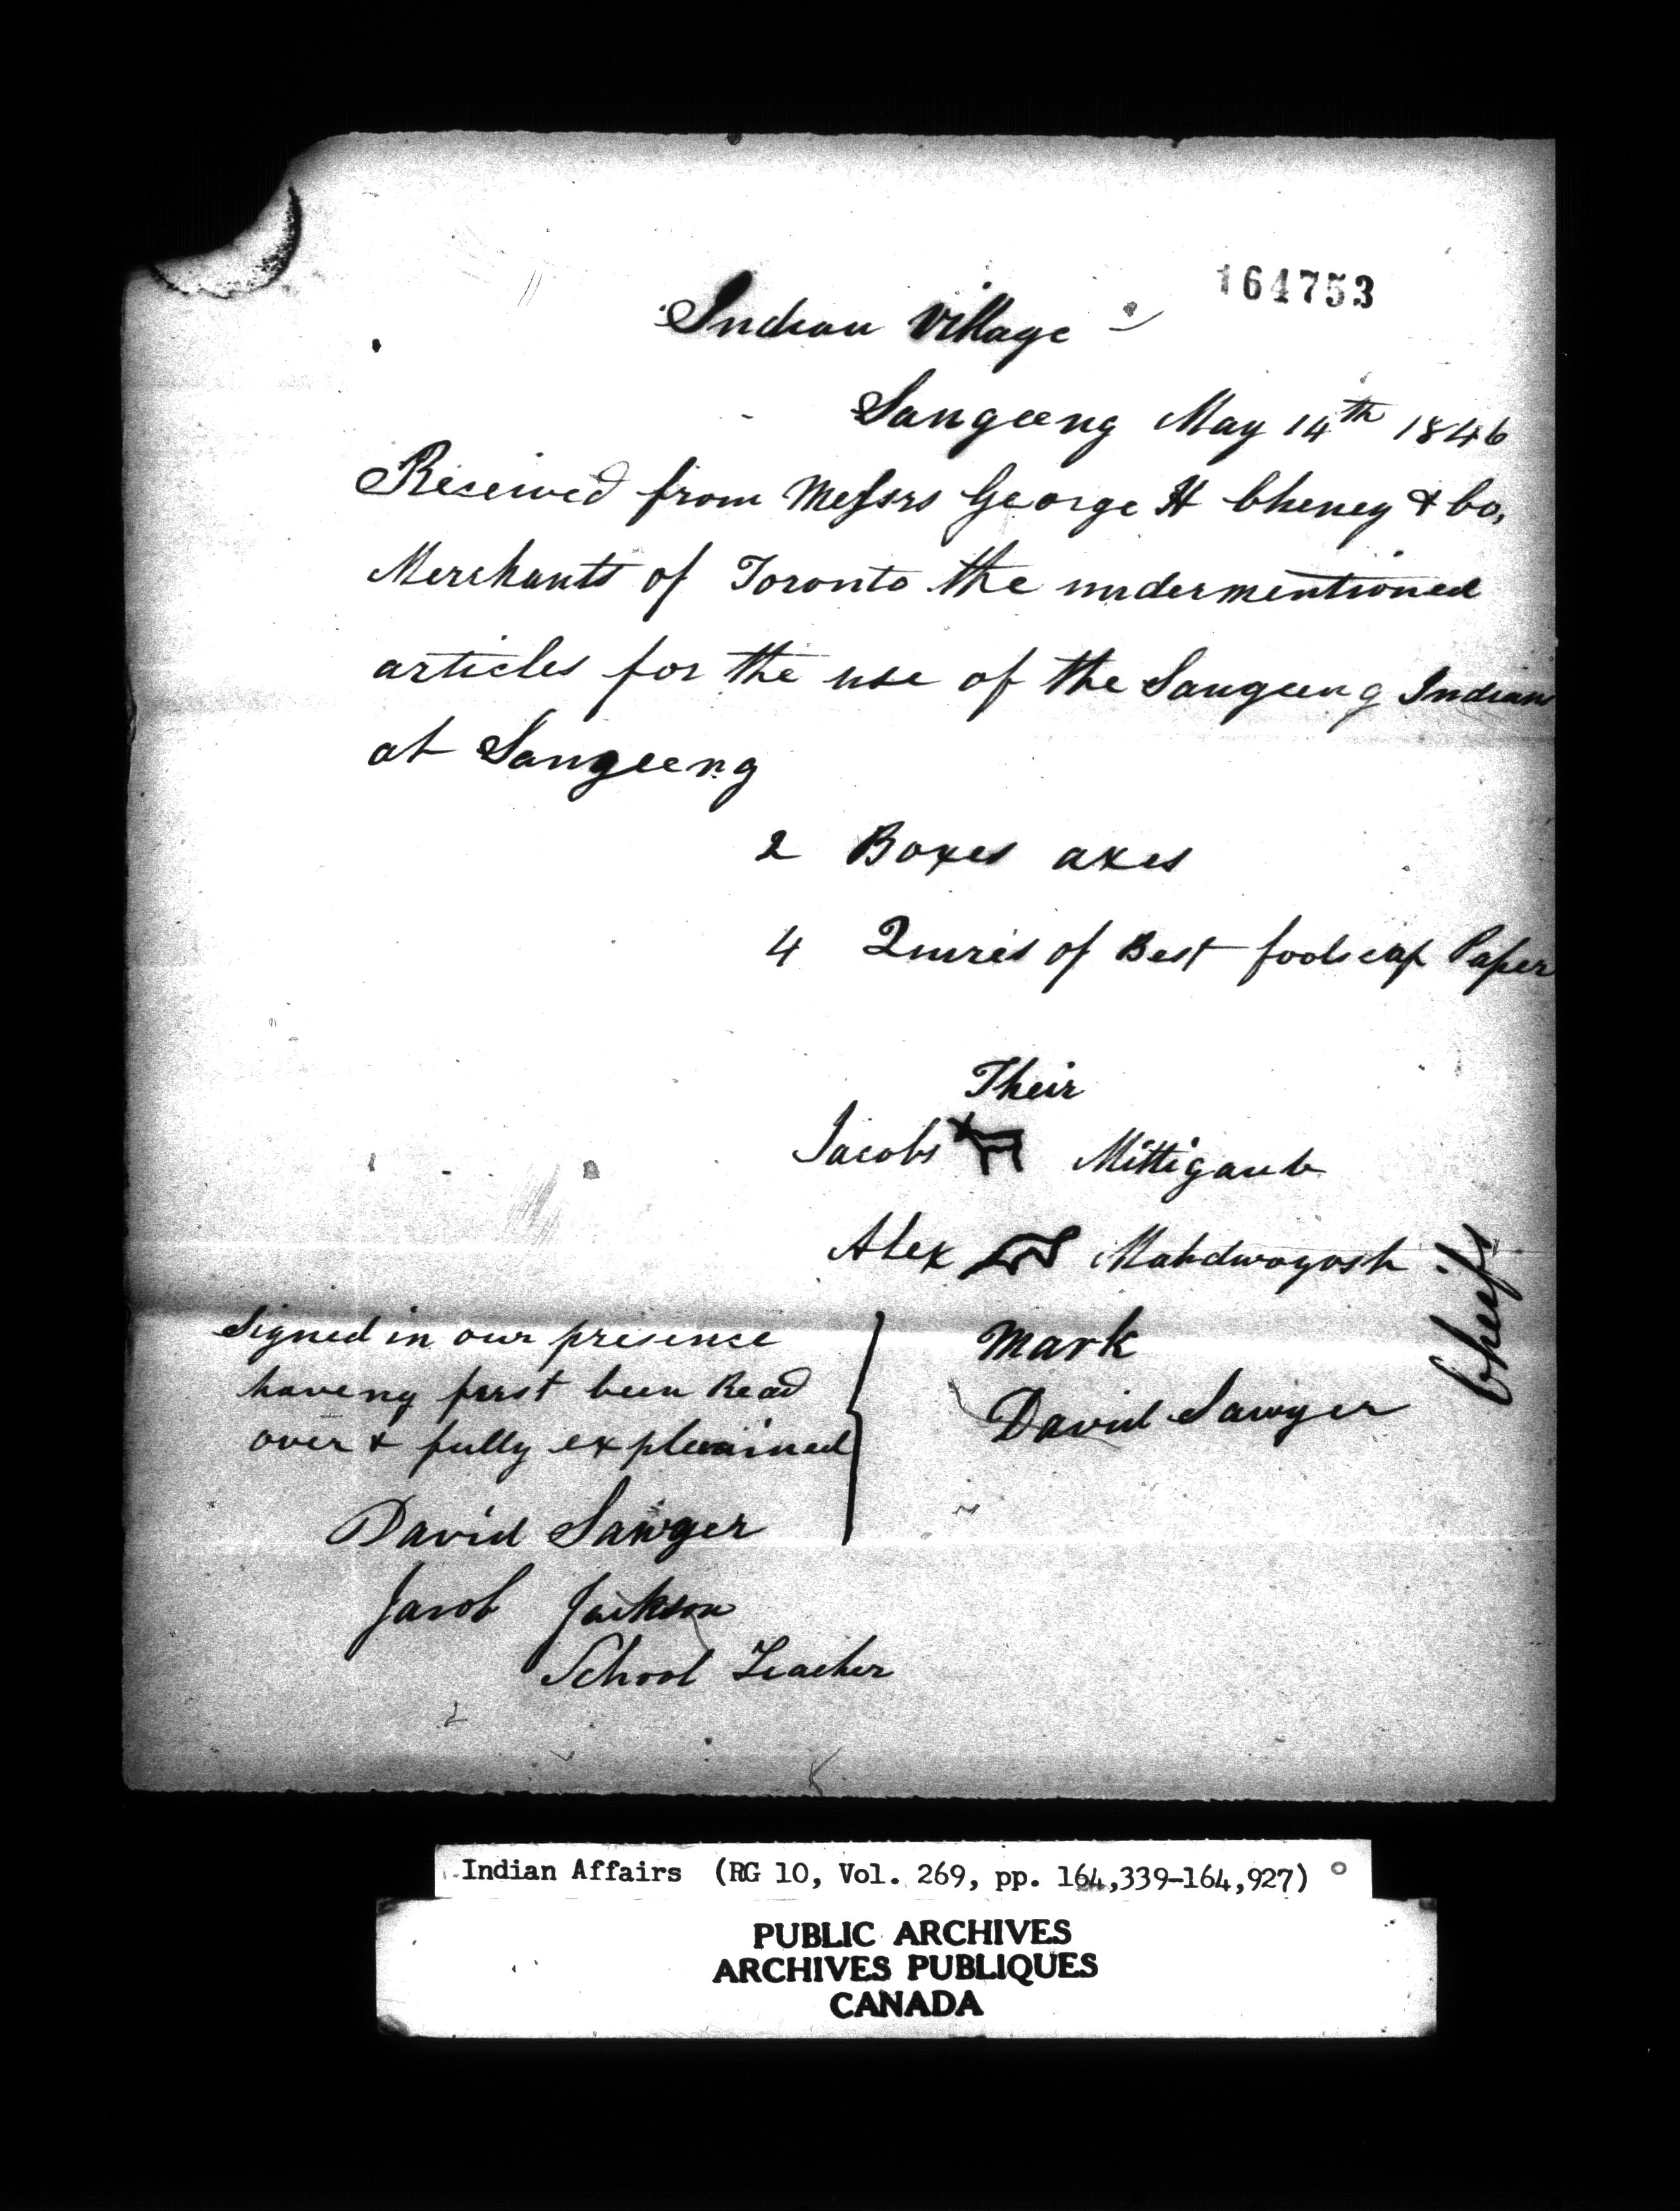 164753
Indian Village
Saugeeng May 14th 1846
Received from Messrs George H Cheney & Co,
Merchants of Toronto the undermentioned
articles for the use of the Saugeeng Indians
at Saugeeng
2 Boxes axes
4 Quires of Best foolscap Paper
Their
Jacobs Mittigaub
Alex Mahdwayosh
Mark
David Sawyer
Cheifs
Signed in our presence
haveng first been Read
over & fully explained
David Sawyer
Jacob Jackson
School Teacher
Indian Affairs (RG 10, Vol. 269, pp. 164,339-164,927)
PUBLIC ARCHIVES
ARCHIVES PUBLIQUES
CANADA